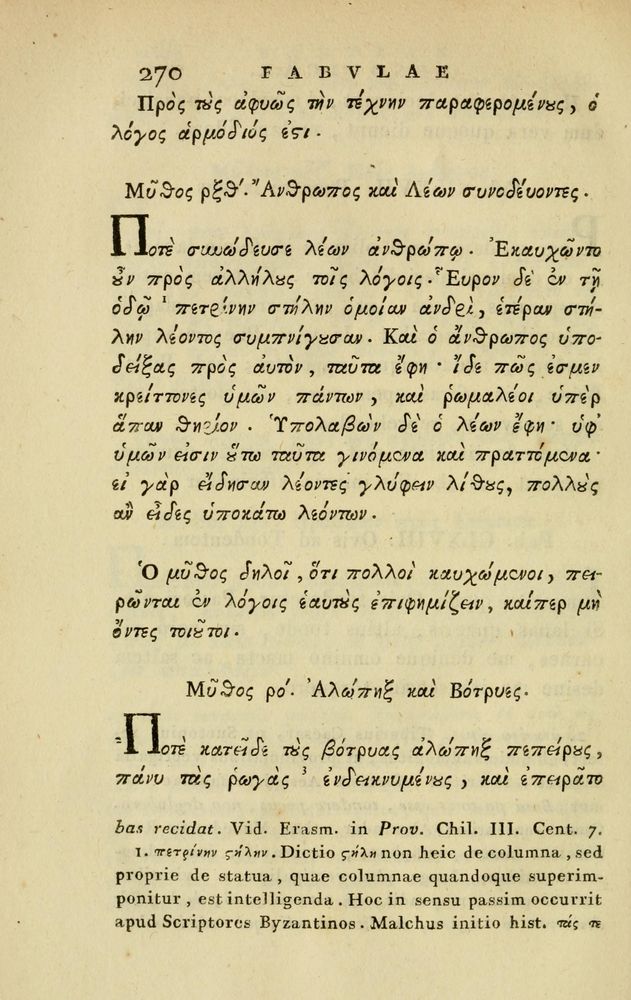 270 FABVLAE
Πρὸς τοὺς ἀφυῶς τὴν τέχνην παραφερομένους, ὁ
λόγος ἁρμόδιός ἐστι.
Μῦθος ρξθ΄. Ἄνθρωπος καὶ Λέων συνοδέυοντες.
Ποτὲ συνώδευσε λέων ἀνθρώπῳ. Ἐκαυχῶντο
οὖν πρὸς ἀλλήλους τοῖς λόγοις. Ἕυρον δὲ ἐν τῇ
ὁδῷ ¹ πετρίνην στήλην ὁμοίαν ἀνδρὶ, ἑτέραν στή-
λην λέοντος συμπνίγουσαν. Καὶ ὁ ἄνθρωπος ὑπο-
δείξας πρὸς αὐτὸν, ταῦτα ἔφη· ἴδε πῶς ἐσμεν
κρείττονες ὑμῶν πάντων, καὶ ῥωμαλέοι ὑπὲρ
ἅπαν θηρίον. Ὑπολαβὼν δὲ ὁ λέων ἔφη· ὑφ᾽
ὑμῶν εἰσιν οὕτω ταῦτα γινόμενα καὶ πραττόμενα·
εἰ γὰρ εἴδησαν λέοντες γλύφειν λίθους, πολλοὺς
ἂν εἶδες ὑποκάτω λεόντων.
Ὁ μῦθος δηλοῖ, ὅτι πολλοὶ καυχώμενοι, πει-
ρῶνται ἐν λόγοις ἑαυτοὺς ἐπιφημίζειν, καίπερ μὴ
ὄντες τοιοῦτοι.
Μῦθος ρο΄. Ἀλώπηξ καὶ Βότρυες.
Ποτὲ κατεῖδε τοὺς βότρυας ἀλώπηξ πεπείρους,
πάνυ τὰς ῥωγὰς ³ ἐνδεικνυμένους, καὶ ἐπειρᾶτο
bas recidat. Vid. Erasm. in Prov. Chil. III. Cent. 7.
1. πετρίνην ϛήλην. Dictio ϛήλη non heic de columna, sed
proprie de statua, quae columnae quandoque superim-
ponitur, est intelligenda. Hoc in sensu passim occurrit
apud Scriptores Byzantinos. Malchus initio hist. τάς τε